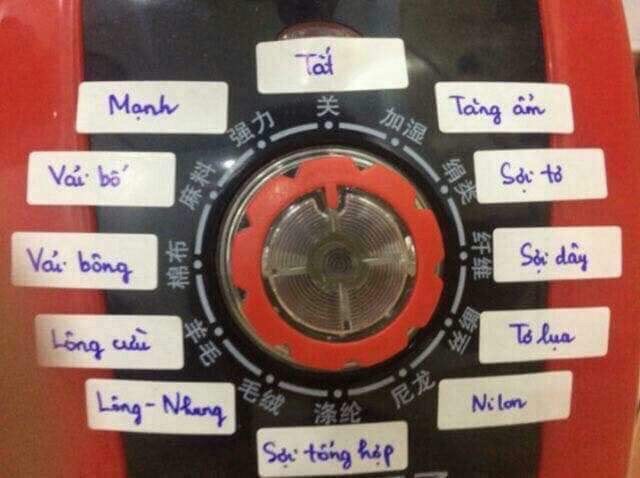 Tắt
Mạnh
Tăng ẩm
强力
关
加湿
Vải bố
麻料
绢类
Sợi tơ
Vải bông
棉布
纤维
Sợi dây
Lông cừu
羊毛
Tơ lụa
Lông - Nhung
毛绒
涤纶
尼龙
Nilon
Sợi tổng hợp